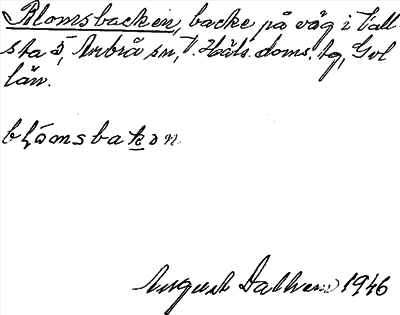 Blomsbacken, backe på väg i Vall-
sta ö, Arbrå sn, V. Häls. doms. tg, Gvl
län.
blomsbakon
August Dalhem 1946